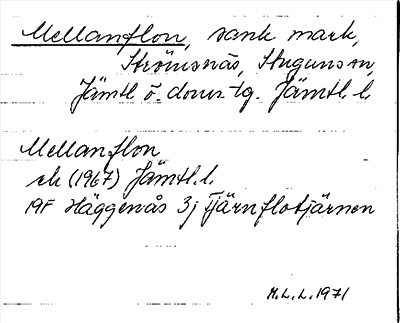 Mellanflon, sank mark,
Strömsnäs, Stuguns sn,
Jämtl. ö. doms-tg. Jämtl. l.
Mellanflon
ek (1967) Jämtl. l.
19F Häggenås 3j Tjärnflotjärnen
M.L.L. 1971